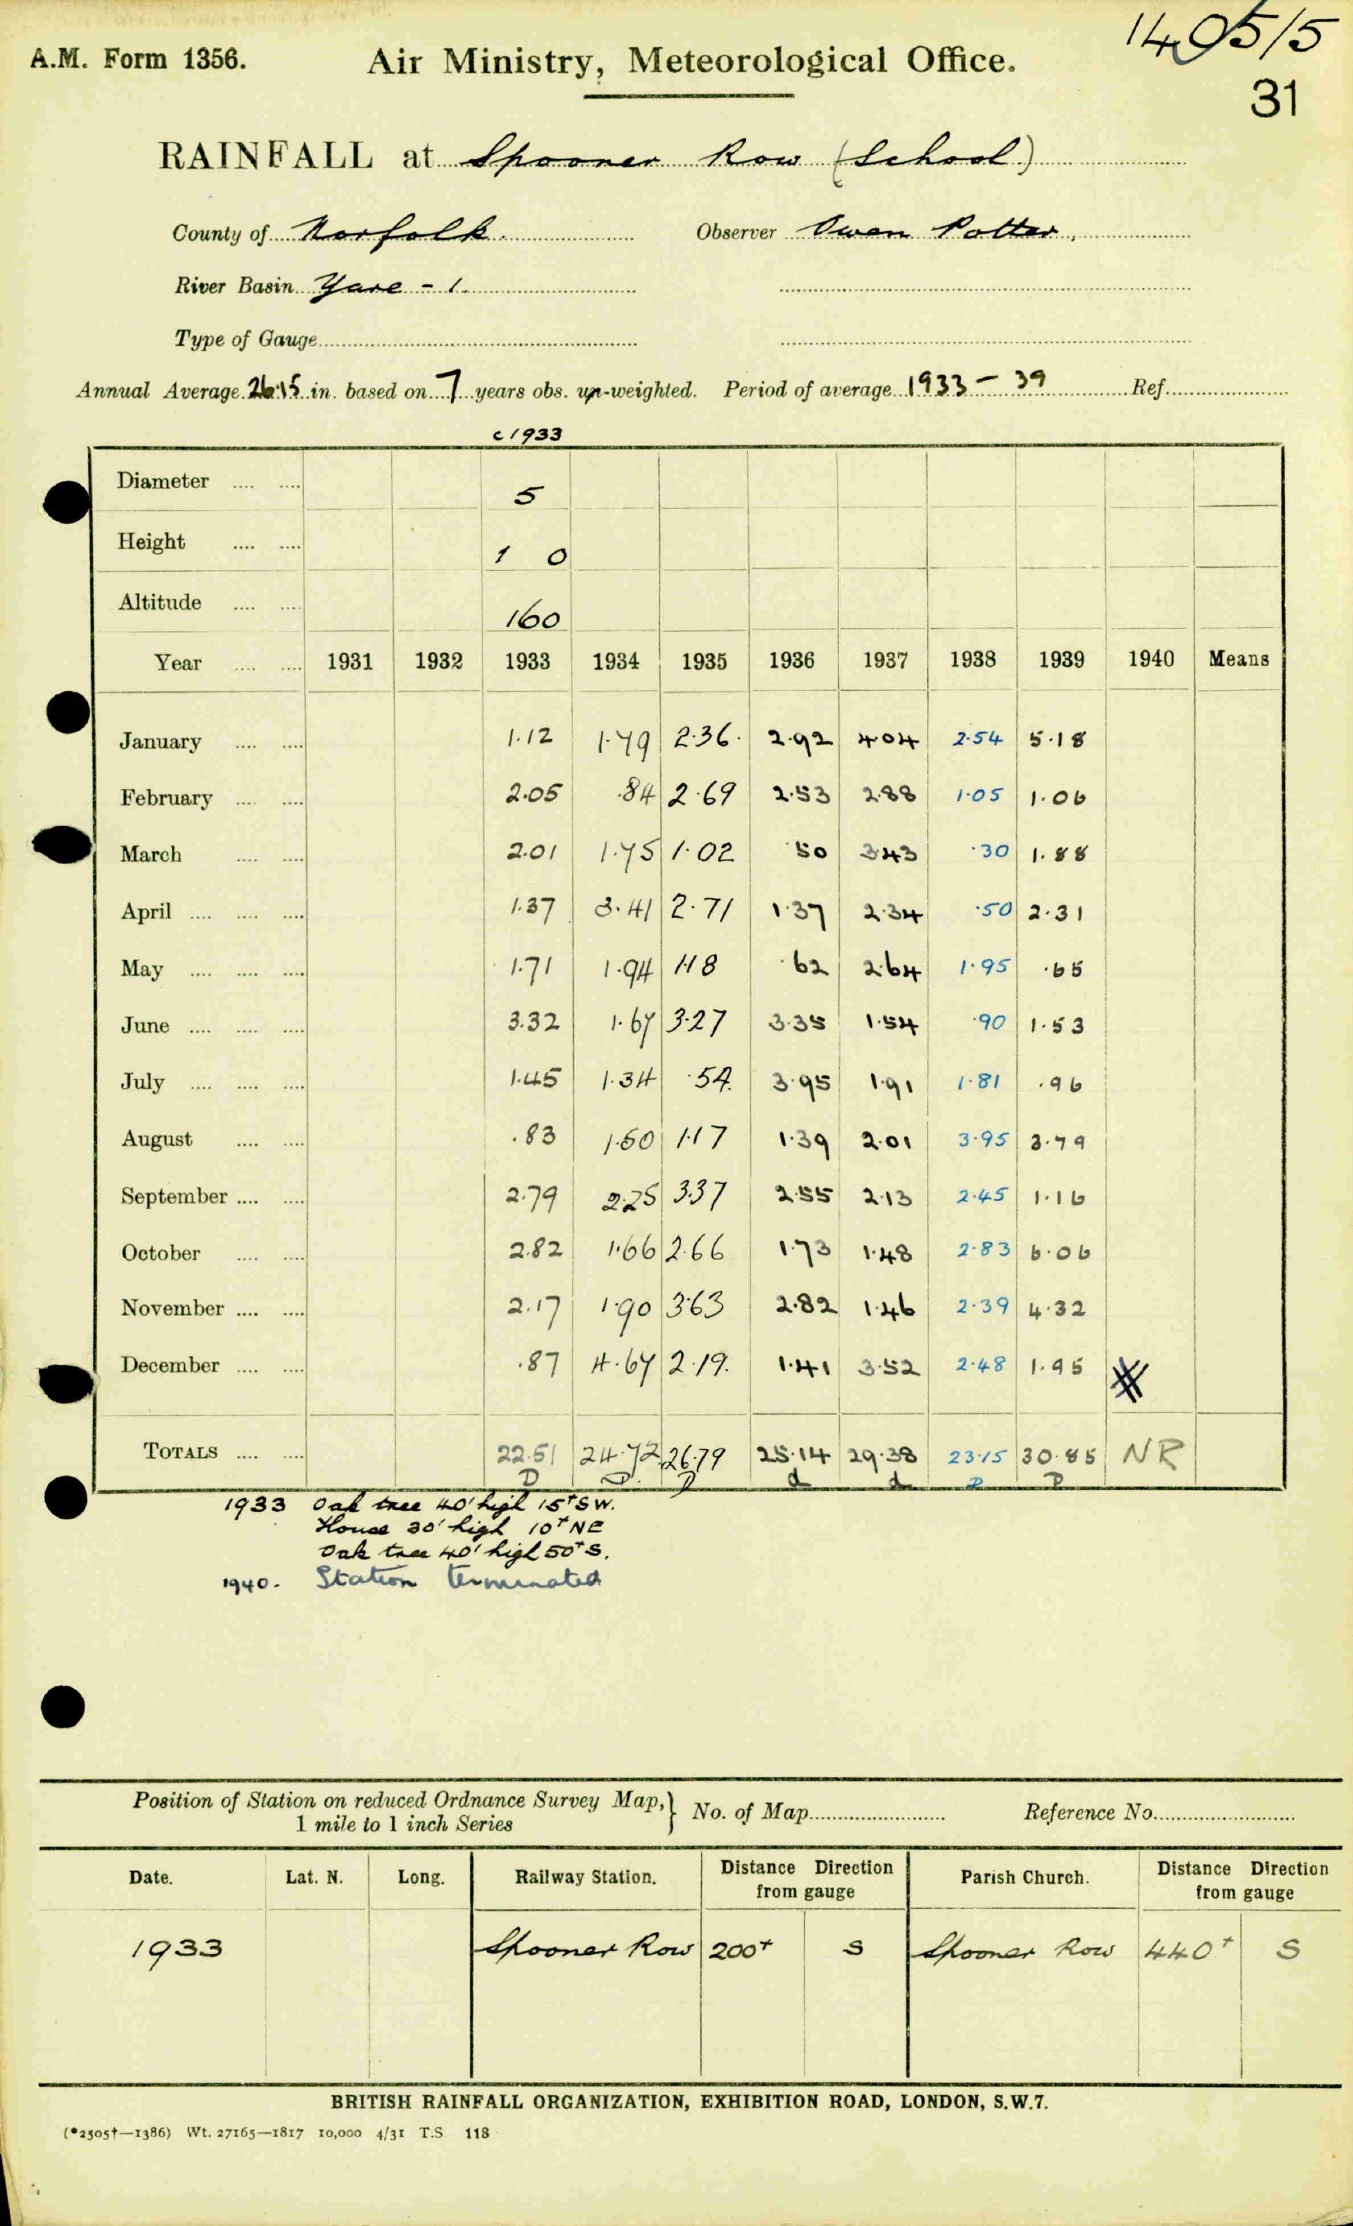 1405/5
A.M. Form 1356. Air Ministry, Meteorological Office.
31
RAINFALL at Spooner Row (School)
County of Norfolk. Observer Owen Potter,
River Basin Yare - 1.
Type of Gauge
Annual Average 26.15 in. based on 7 years obs. un-weighted. Period of average 1933 - 39 Ref.
c1933
Diameter 5
Height 1 0
Altitude 160
Year 1931 1932 1933 1934 1935 1936 1937 1938 1939 1940 Means
January 1.12 1.79 2.36 2.92 4.04 2.54 5.18
February 2.05 .84 2.69 2.53 2.88 1.05 1.06
March 2.01 1.75 1.02 .50 3.43 .30 1.88
April 1.37 3.41 2.71 1.37 2.34 .50 2.31
May 1.71 1.94 1.18 .62 2.64 1.95 .65
June 3.32 1.67 3.27 3.35 1.54 .90 1.53
July 1.45 1.34 .54 3.95 1.91 1.81 .96
August .83 1.50 1.17 1.39 2.01 3.95 3.79
September 2.79 2.25 3.37 2.55 2.13 2.45 1.16
October 2.82 1.66 2.66 1.73 1.48 2.83 6.06
November 2.17 1.90 3.63 2.82 1.46 2.39 4.32
December .87 4.67 2.19 1.41 3.52 2.48 1.95
TOTALS 22.51 24.72 26.79 25.14 29.38 23.15 30.85 NR
D D D d d D D
1933 Oak tree 40' high 15+ SW.
House 30' high 10+ NE
Oak tree 40' high 50+ S.
1940. Station terminated
Position of Station on reduced Ordnance Survey Map, 1 mile to 1 inch Series } No. of Map Reference No.
Date. Lat. N. Long. Railway Station. Distance Direction from gauge Parish Church. Distance Direction from gauge
1933 Spooner Row 200+ S Spooner Row 440+ S
BRITISH RAINFALL ORGANIZATION, EXHIBITION ROAD, LONDON, S.W.7.
(*2505†—1386) Wt. 27165—1817 10,000 4/31 T.S. 118